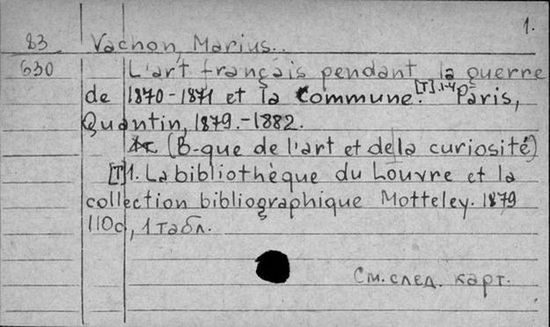 1.
83 Vachon, Marius.
630 L'art français pendant la guerre
de 1870-1871 et la Commune. [T]. 1-4 Paris,
Quantin, 1879.-1882.
(B-que de l'art et de la curiosité)
[T] 1. La bibliothèque du Louvre et la
collection bibliographique Motteley. 1879
110c, 1 табл.
См. след. карт.